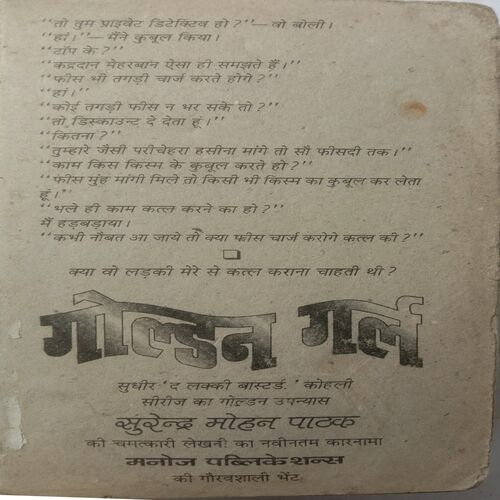 “तो तुम प्राइवेट डिटेक्टिव हो?”—वो बोली।
“हां।”—मैंने कुबूल किया।
“टॉप के?”
“कद्रदान मेहरबान ऐसा ही समझते हैं।”
“फीस भी तगड़ी चार्ज करते होगे?”
“हां।”
“कोई तगड़ी फीस न भर सके तो?”
“तो, डिस्काउन्ट दे देता हूं।”
“कितना?”
“तुम्हारे जैसी परीचेहरा हसीना मांगे तो सौ फीसदी तक।”
“काम किस किस्म के कुबूल करते हो?”
“फीस मुंह मांगी मिले तो किसी भी किस्म का कुबूल कर लेता
हूं।”
“भले ही काम कत्ल करने का हो?”
मैं हड़बड़ाया।
“कभी नौबत आ जाये तो क्या फीस चार्ज करोगे कत्ल की?”
क्या वो लड़की मेरे से कत्ल कराना चाहती थी?
गोल्डन गर्ल
सुधीर ‘द लक्की बास्टर्ड.’ कोहली
सीरीज का गोल्डन उपन्यास
सुरेन्द्र मोहन पाठक
की चमत्कारी लेखनी का नवीनतम कारनामा
मनोज पब्लिकेशन्स
की गौरवशाली भेंट